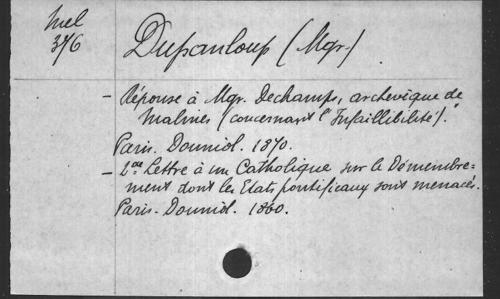 Mel
376
Dupanloup (Mgr.)
- Réponse à Mgr. Dechamps, archevêque de
Malines (concernant l'Infaillibilité)."
Paris. Douniol. 1870.
- 2me Lettre à un Catholique sur le Démembre-
ment dont les Etats pontificaux sont menacés.
Paris. Douniol. 1860.